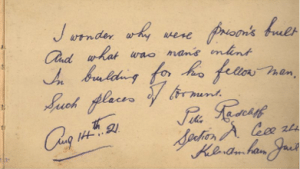 I wonder why were prison's built
And what was man's intent
In building for his fellow men,
Such places of torment.
Aug 14th. 21
Section A. Cell 24
Kilmainham Jail